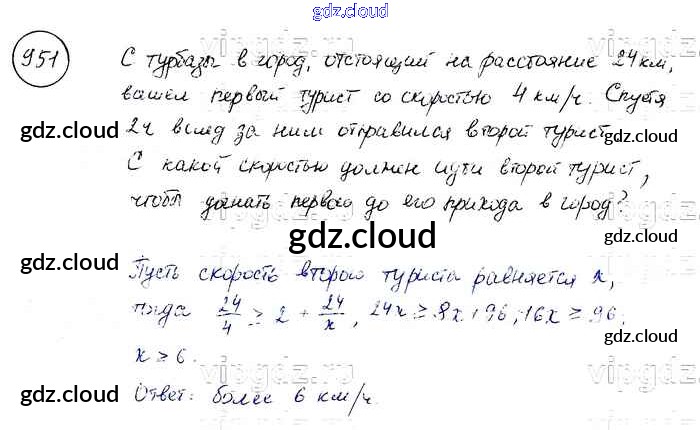 gdz.cloud
951 С турбазы в город, отстоящий на расстояние 24 км,
вашел первый турист со скоростью 4 км/ч. Спустя
gdz.cloud gdz.cloud
2ч вслед за ним отправился второй турист.
С какой скоростью должен идти второй турист,
чтобы догнать первого до его прихода в город?
gdz.cloud gdz.cloud
gdz.cloud
Пусть скорость второго туриста равняется x,
тогда 24/4 ≥ 2 + 24/x, 24x ≥ 8x + 96; 16x ≥ 96;
gdz.cloud gdz.cloud
x ≥ 6.
gdz.cloud gdz.cloud
Ответ: более 6 км/ч.